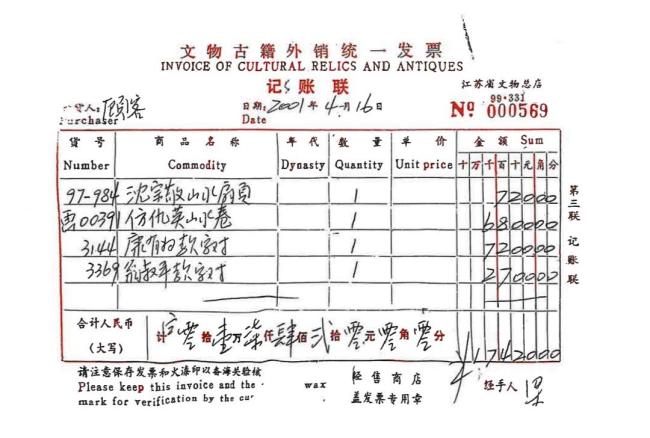 文物古籍外销统一发票
INVOICE OF CULTURAL RELICS AND ANTIQUES
记账联
江苏省文物总店
货人: 顾客 日期: 2001年4月16日 99·331
Purchaser Date № 000569
货号 商品名称 年代 数量 单价 金额 Sum
Number Commodity Dynasty Quantity Unit price 十万千百十元角分
97-984 沈宗敬山水扇页 1 72000
画00391 仿仇英山水卷 1 680000
3144 康有为款字对 1 720000
3369 翁叔平款字对 1 270000
合计人民币 计 零拾壹万柒仟肆佰弍拾零元零角零分
(大写) ¥1742000
第三联 记账联
请注意保存发票和火漆印以备海关验核 经售商店 经手人 梁
Please keep this invoice and the wax 盖发票专用章
mark for verification by the